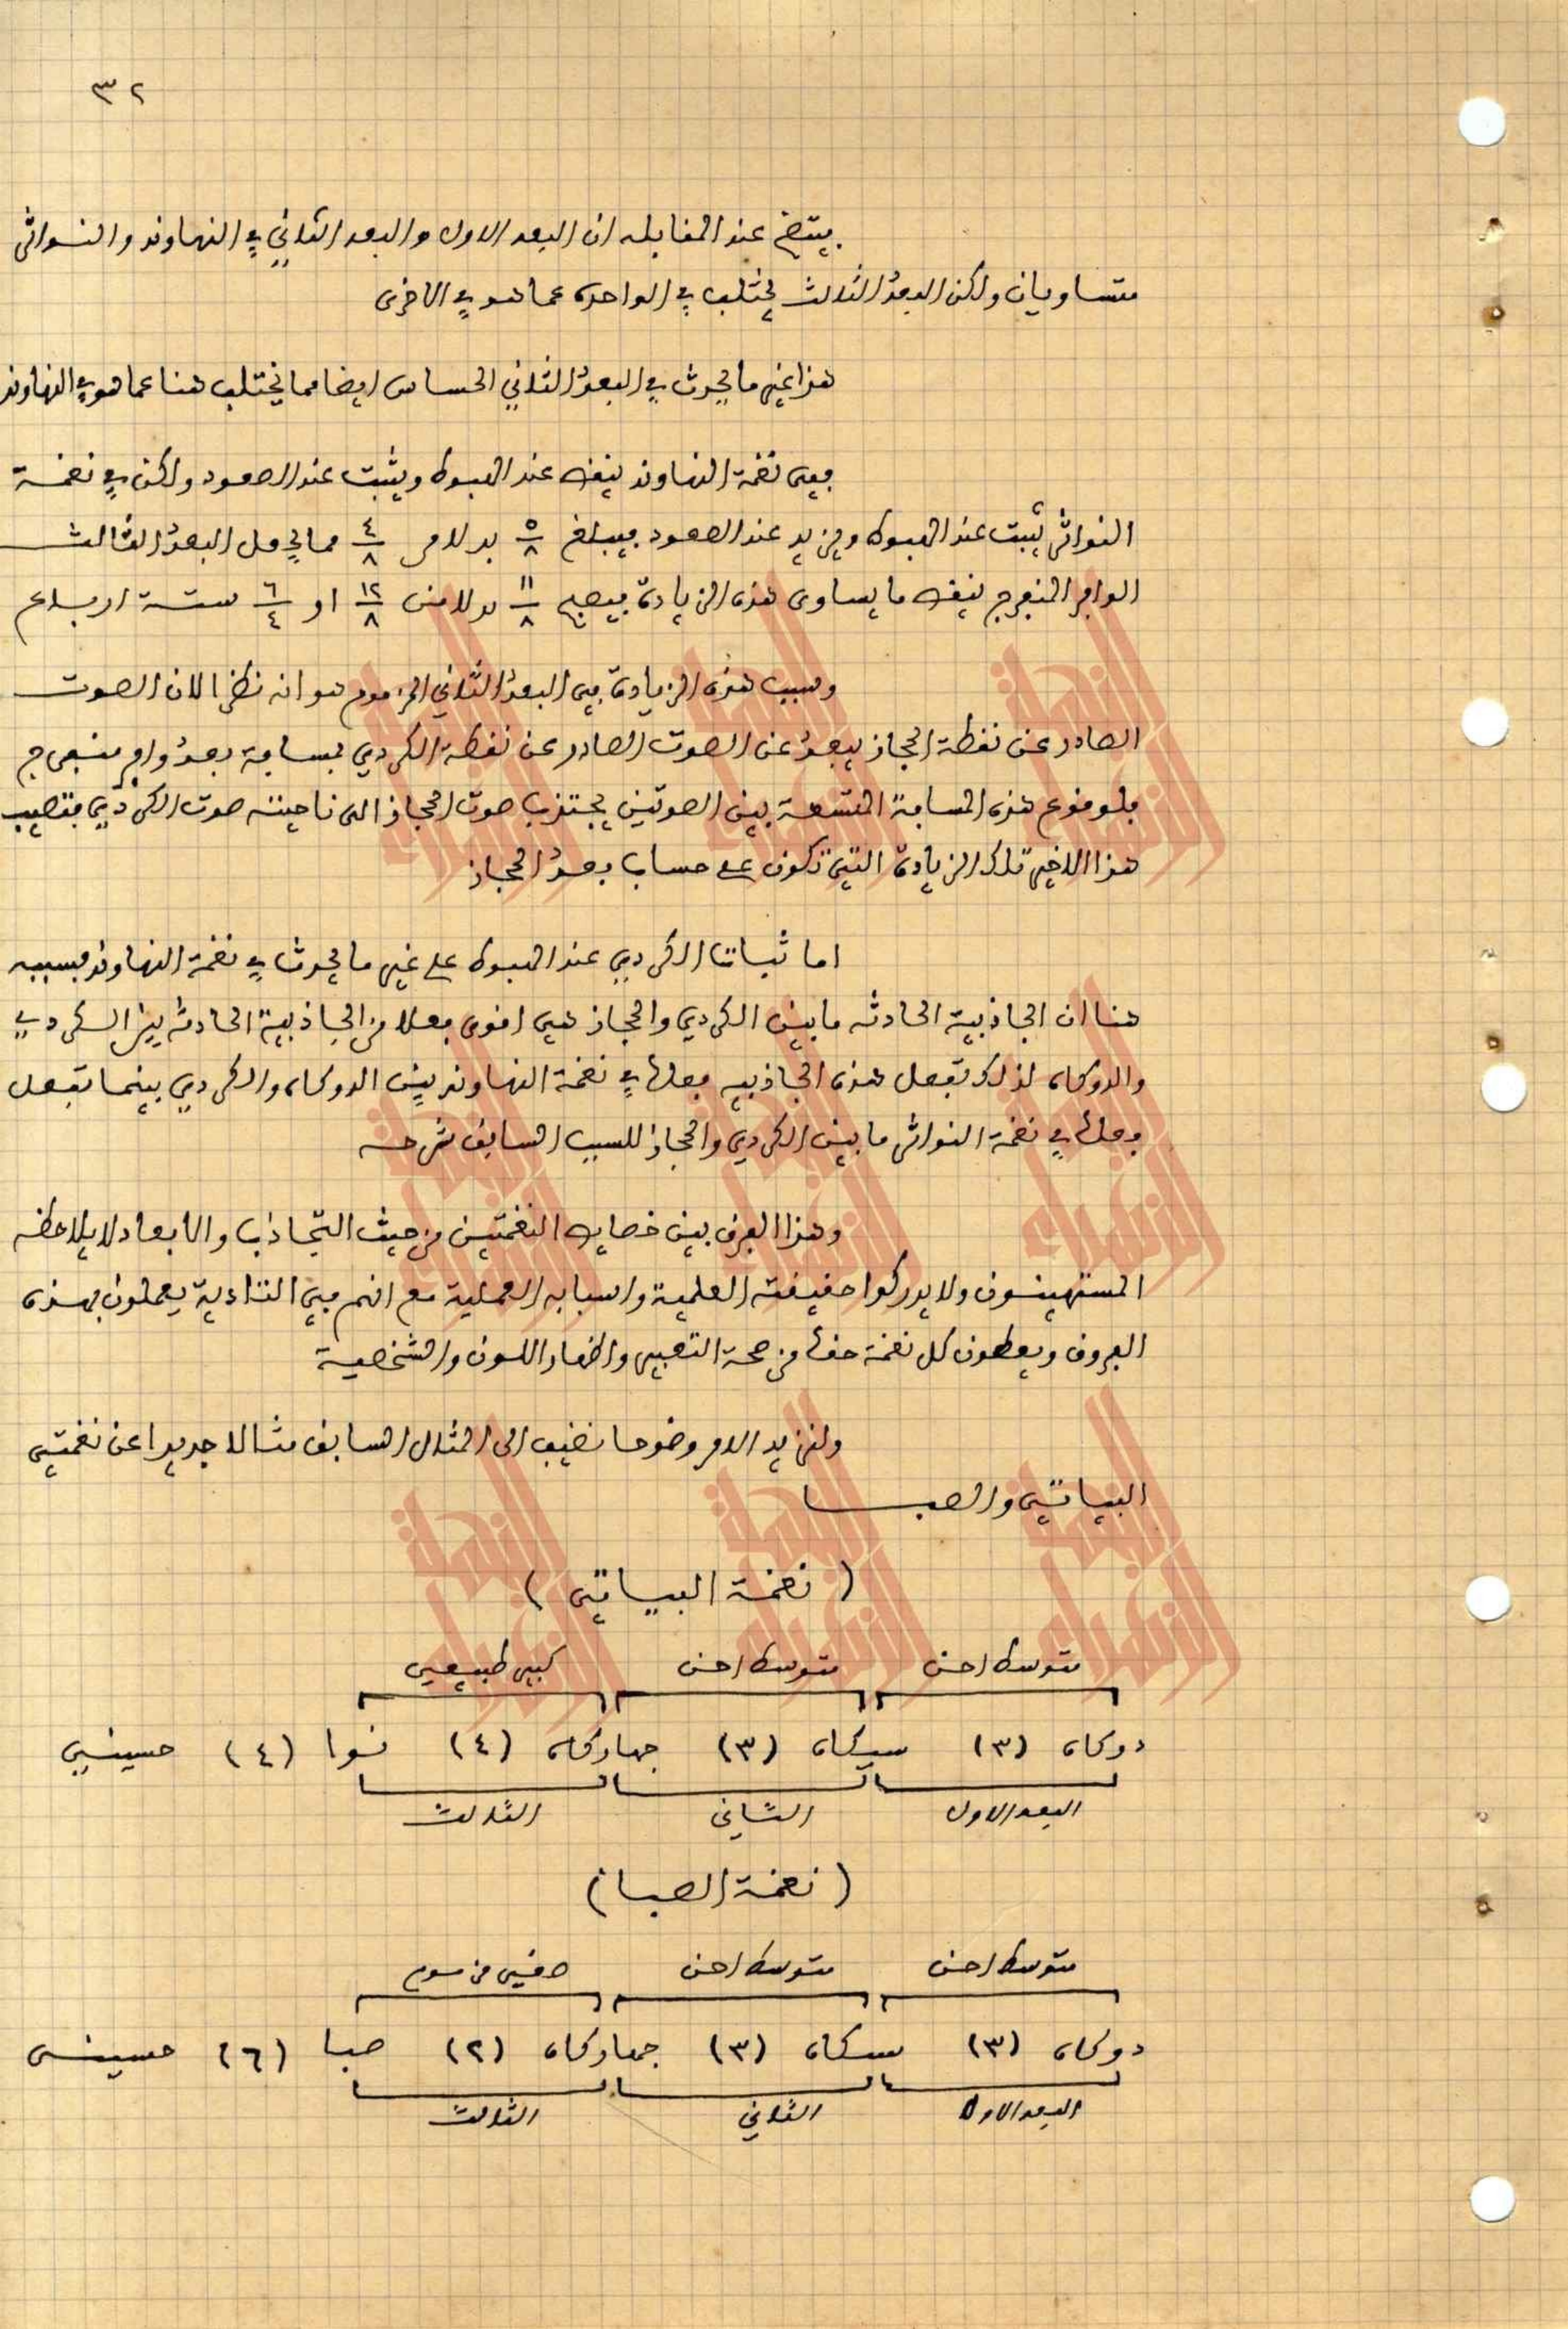 ٣٢
يتضح عند المقابله ان البعد الاول والبعد الثاني في النهاوند والنواثر
متساويان ولكن البعد الثالث يختلف في الواحدة عما هو في الاخرى
هذا غير ما يحدث في البعد الثاني الحساس ايضا مما يختلف هنا عما هو في النهاوند
ففي نغمة النهاوند ينقص عند الهبوط ويثبت عند الصعود ولكن في نغمة
النواثر يثبت عند الهبوط ويزيد عند الصعود فيبلغ ٥/٨ بدلا من ٤/٨ مما يجعل البعد الثالث
الوافر المنفرج ينقص ما يساوى هذه الزيادة فيصبح ١١/٨ بدلا من ١٢/٨ او ٦/٤ ستة ارباع
وسبب هذه الزيادة في البعد الثاني المزموم هو انه نظرا لان الصوت
الصادر عن نقطة الحجاز يبعد عن الصوت الصادر عن نقطة الكردي بمسافة بعد وافر منفرج
فلوقوع هذه المسافة المتسعة بين الصوتين يجتذب صوت الحجاز الى ناحيته صوت الكردي فتصيب
هذا الاخير تلك الزيادة التي تكون على حساب بعد الحجاز
اما ثبات الكردي عند الهبوط على غير ما يحدث في نغمة النهاوند فسببه
هنا ان الجاذبية الحادثه ما بين الكردي والحجاز هي اقوى فعلا من الجاذبية الحادثه بين الكردي
والدوكاه لذلك تفعل هذه الجاذبيه فعلها في نغمة النهاوند بين الدوكاه والكردي بينما تفعل
فعلها في نغمة النواثر ما بين الكردي والحجاز للسبب السابق شرحه
وهذا الفرق بين خصايص النغمتين من حيث التجاذب والابعاد لا يلاحظه
المستهينون ولا يدركوا حقيقته العلمية واسبابه العملية مع انهم في التادية يعملون بهذه
الفروق ويعطون كل نغمة حقها من صحة التعبير واظهار اللون والشخصية
ولنزيد الامر وضوحا نضيف الى المثال السابق مثالا جديدا عن نغمتي
البياتي والصبا
( نغمة البياتي )
متوسط احن متوسط احن كبير طبيعي
دوكاه (٣) سيكاه (٣) جهاركاه (٤) نوا (٤) حسيني
البعد الاول الثاني الثالث
( نغمة الصبا )
متوسط احن متوسط احن صغير مزموم
دوكاه (٣) سيكاه (٣) جهاركاه (٢) صبا (٦) حسيني
البعد الاول الثاني الثالث